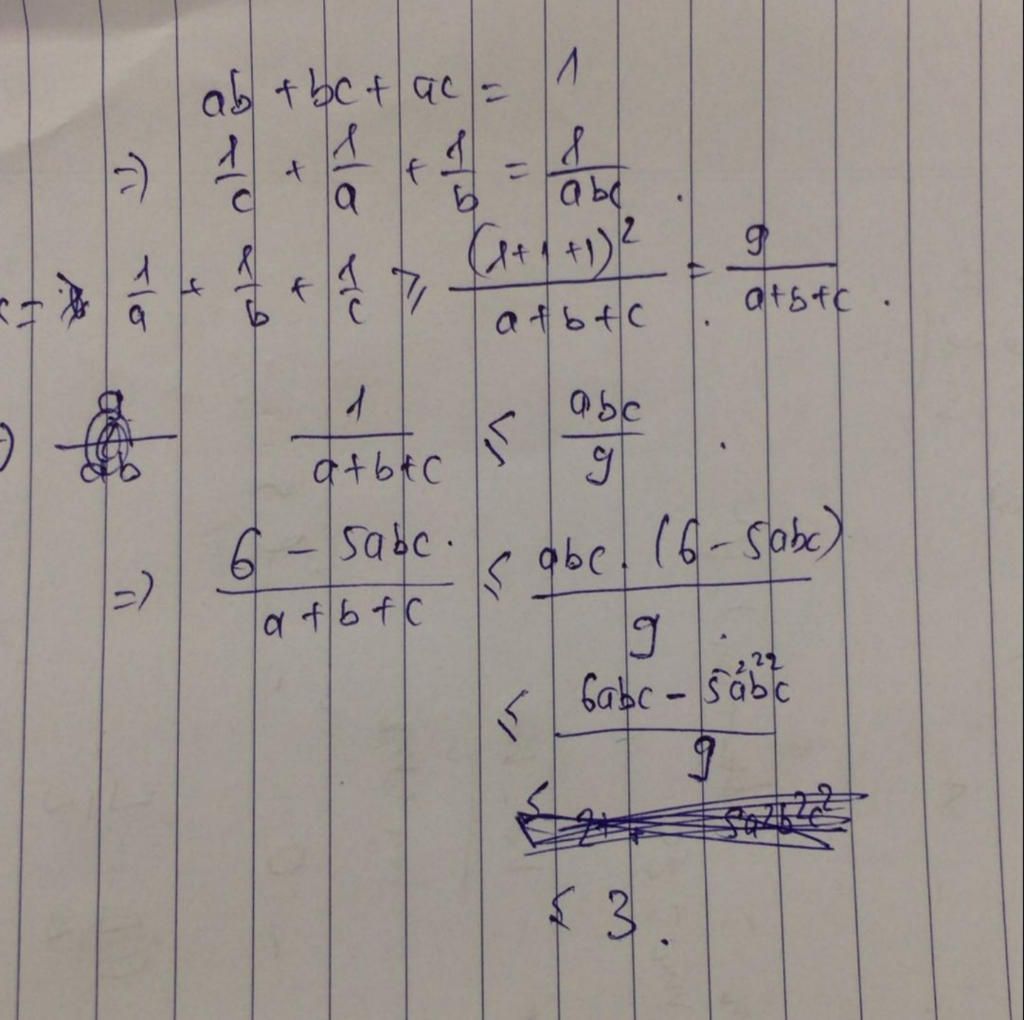 ab + bc + ac = 1
=) 1/c + 1/a + 1/b = 1/abc .
1/a + 1/b + 1/c ≥ (1+1+1)²/(a+b+c) = 9/(a+b+c) .
1/(a+b+c) ≤ abc/9 .
=) (6 - 5abc.)/(a+b+c) ≤ abc.(6 - 5abc)/9 .
≤ (6abc - 5a²b²c²)/9
≤ 3 .